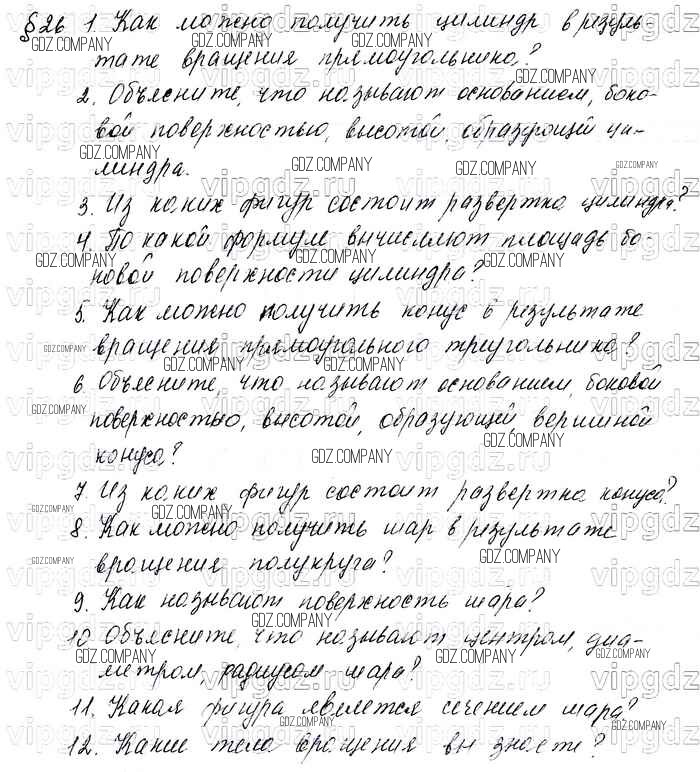 §26 1. Как можно получить цилиндр в резуль-
тате вращения прямоугольника?
2. Объясните, что называют основанием, боко-
вой поверхностью, высотой, образующей ци-
линдра.
3. Из каких фигур состоит развертка цилиндра?
4. По какой формуле вычисляют площадь бо-
ковой поверхности цилиндра?
5. Как можно получить конус в результате
вращения прямоугольного треугольника?
6. Объясните, что называют основанием, боковой
поверхностью, высотой, образующей, вершиной
конуса?
7. Из каких фигур состоит развертка конуса?
8. Как можно получить шар в результате
вращения полукруга?
9. Как называют поверхность шара?
10 Объясните, что называют центром, диа-
метром, радиусом шара?
11. Какая фигура является сечением шара?
12. Какие тела вращения вы знаете?
GDZ.COMPANY
vipgdz.ru